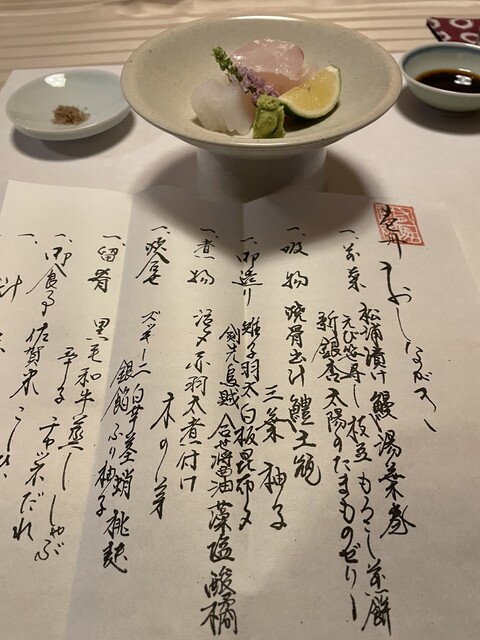 おしながき
一、前菜 松浦漬け 鰻湯葉巻
えび笹寿し 枝豆 もろこし煎餅
新銀杏 太陽のたまものゼリー
一、吸物 焼骨出汁 鱧土瓶
三葉 柚子
一、御造り 雉子羽太 白板昆布〆
剣先烏賊 合せ醤油 藻塩 酸橘
一、煮物 活〆赤羽太煮付け
木の芽
ズッキーニ 白芋茎 蛸 桃麩
銀餡 ふり柚子
一、留肴 黒毛和牛蒸ししゃぶ
一、御食事 佐賀米こしひ
一、